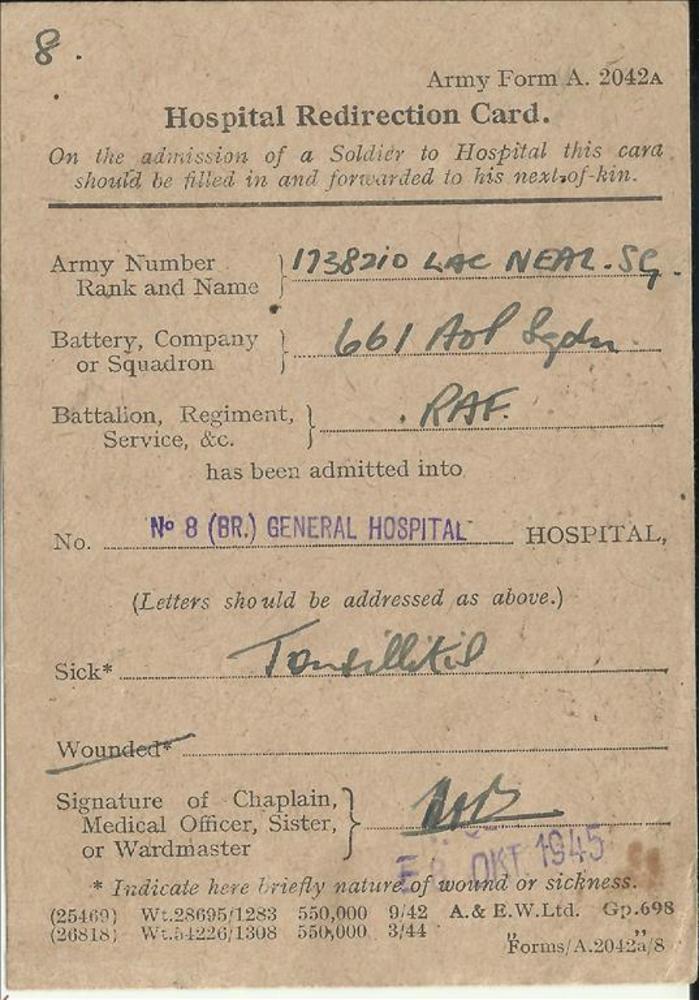 8.
Army Form A. 2042A
Hospital Redirection Card.
On the admission of a Soldier to Hospital this card
should be filled in and forwarded to his next-of-kin.
Army Number
Rank and Name } 1738210 LAC NEAL. SG.
Battery, Company
or Squadron } 661 AOP Sqdn
Battalion, Regiment,
Service, &c. } . RAF.
has been admitted into
No. No 8 (BR.) GENERAL HOSPITAL HOSPITAL,
(Letters should be addressed as above.)
Sick* Tonsillitis
Wounded*
Signature of Chaplain,
Medical Officer, Sister,
or Wardmaster }
OKT 1945
* Indicate here briefly nature of wound or sickness.
(25469) Wt.28695/1283 550,000 9/42 A.& E.W.Ltd. Gp.698
(26818) Wt.54226/1308 550,000 3/44 " "
Forms/A.2042a/8